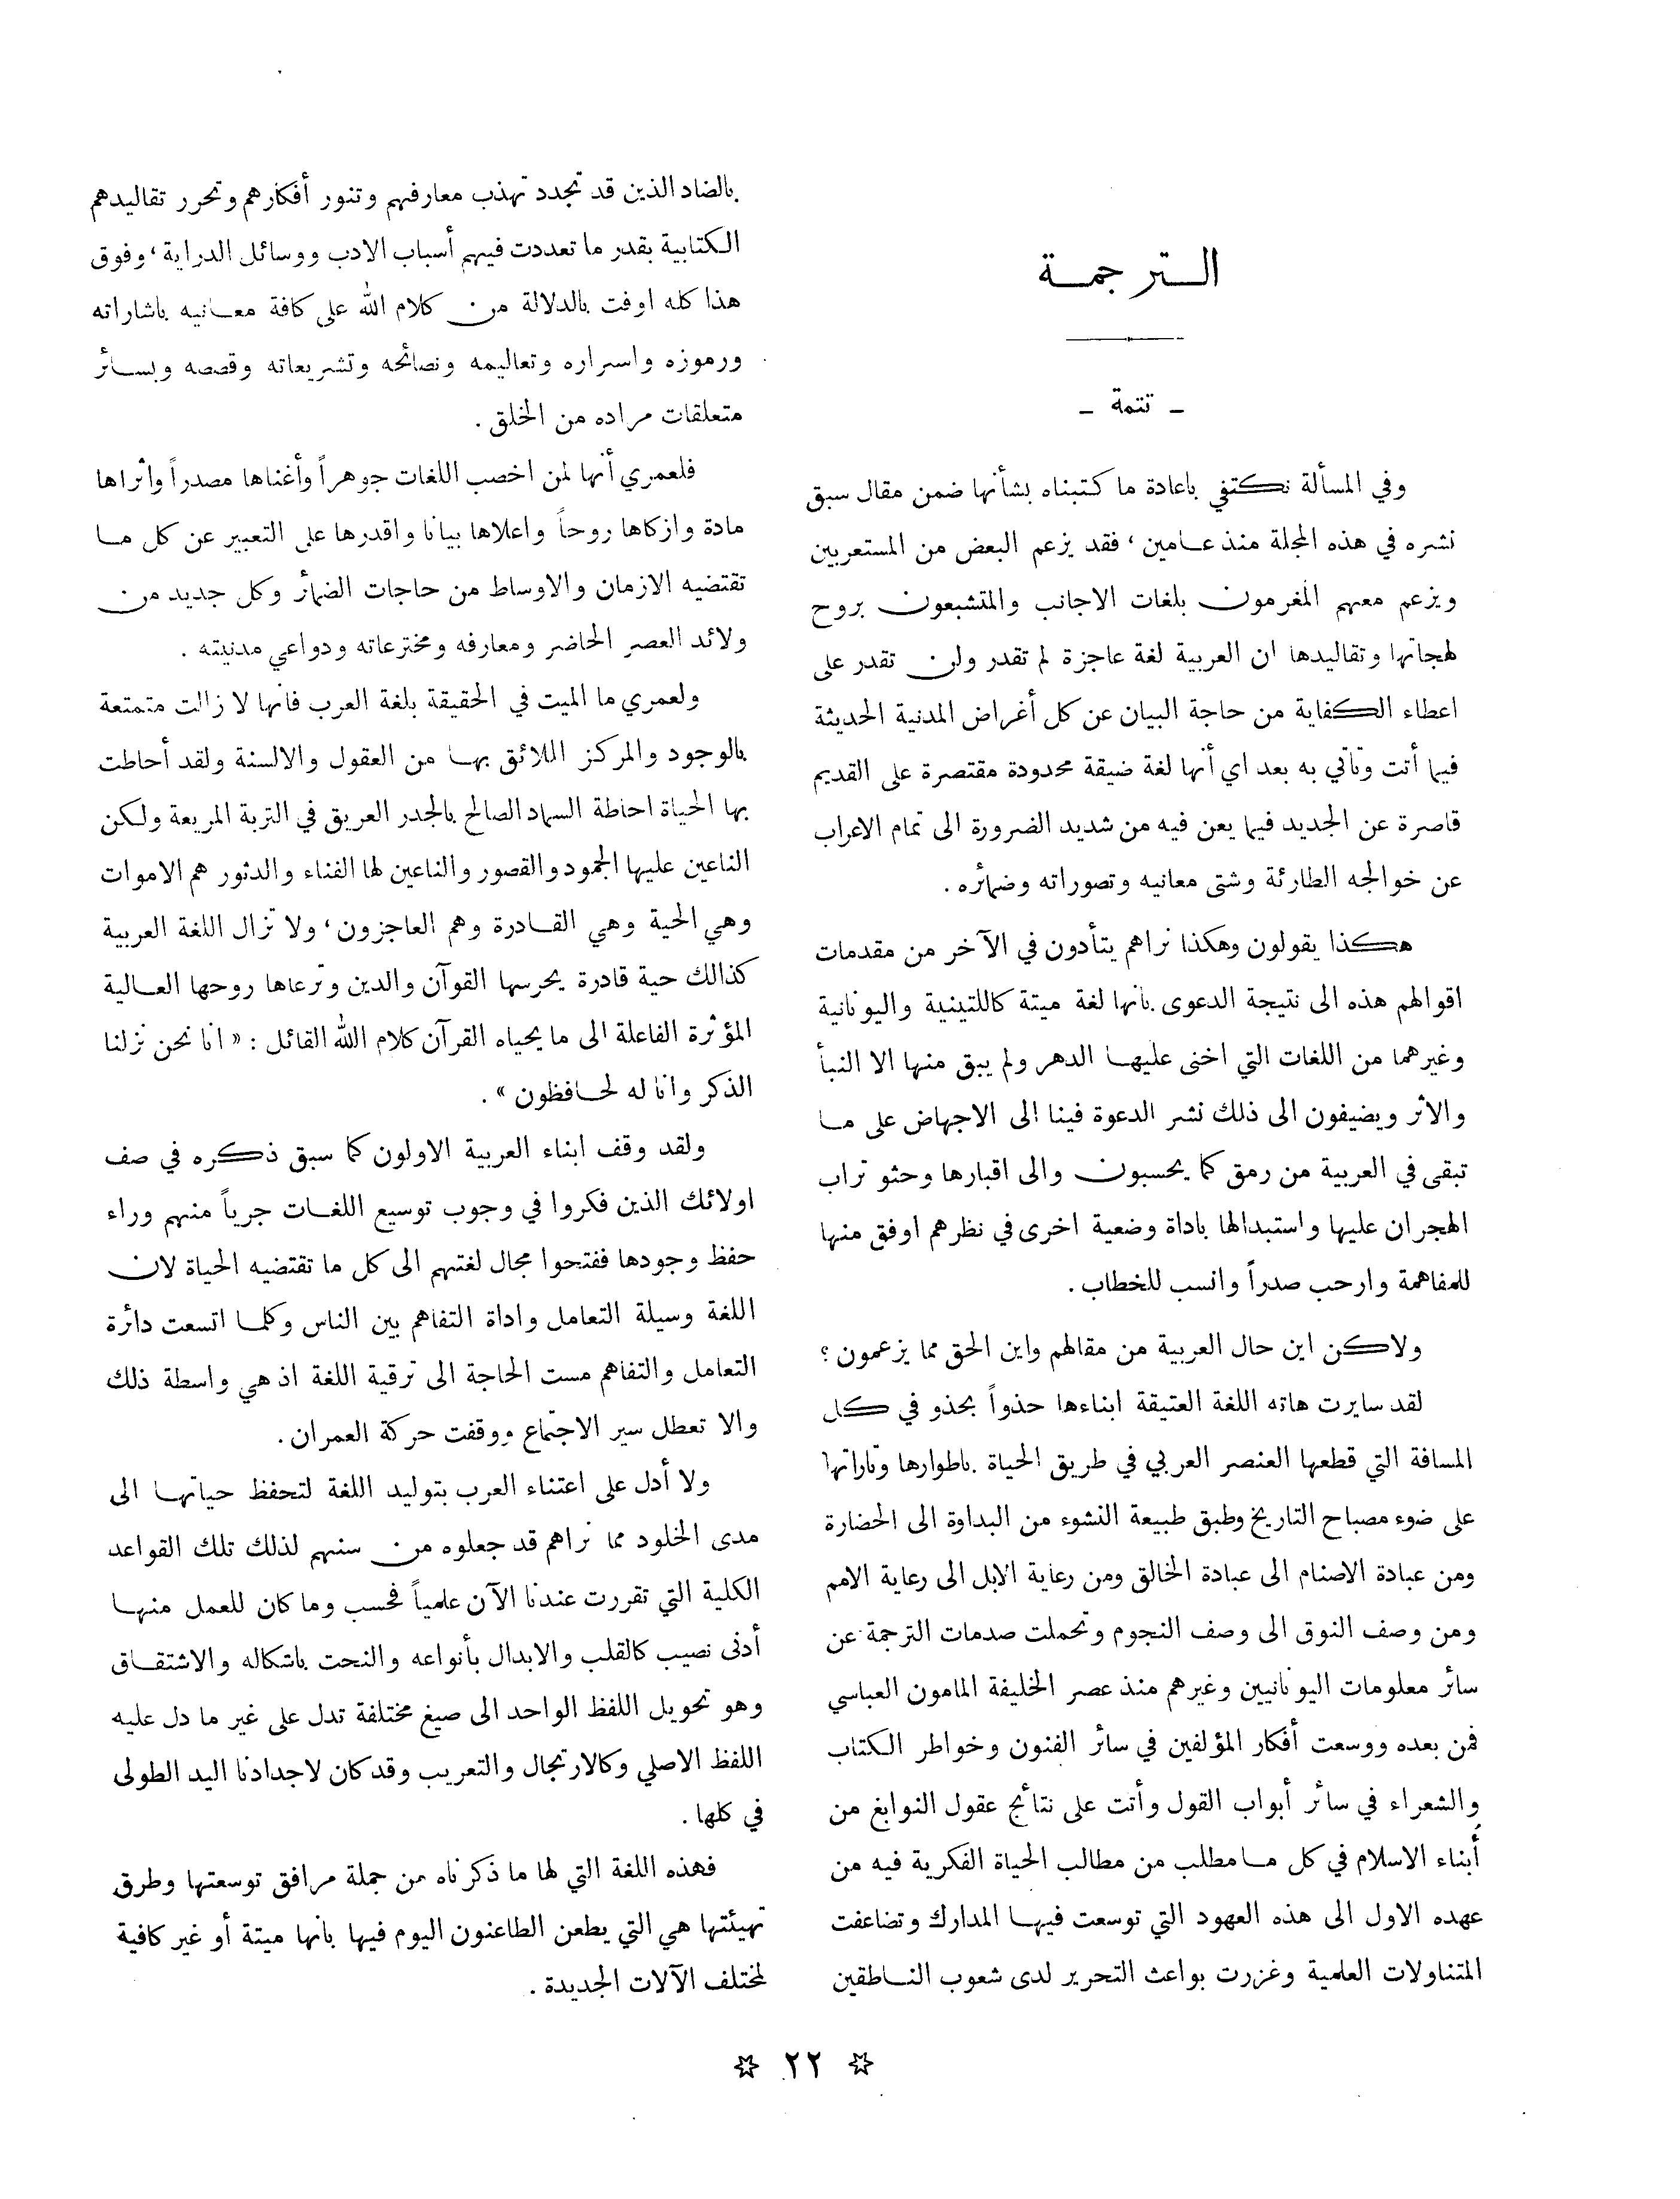 الترجمة
- تتمة -
وفي المسألة نكتفي باعادة ما كتبناه بشأنها ضمن مقال سبق
نشره في هذه المجلة منذ عامين، فقد يزعم البعض من المستعربين
ويزعم معهم المغرمون بلغات الاجانب والمتشبعون بروح
لهجاتها وتقاليدها ان العربية لغة عاجزة لم تقدر ولن تقدر على
اعطاء الكفاية من حاجة البيان عن كل أغراض المدنية الحديثة
فيما أتت وتأتي به بعد اي أنها لغة ضيقة محدودة مقتصرة على القديم
قاصرة عن الجديد فيما يعن فيه من شديد الضرورة الى تمام الاعراب
عن خوالجه الطارئة وشتى معانيه وتصوراته وضمائره .
هكذا يقولون وهكذا نراهم يتأدون في الآخر من مقدمات
اقوالهم هذه الى نتيجة الدعوى بانها لغة ميتة كاللتينية واليونانية
وغيرهما من اللغات التي اخنى عليها الدهر ولم يبق منها الا النبأ
والاثر ويضيفون الى ذلك نشر الدعوة فينا الى الاجهاض على ما
تبقى في العربية من رمق كما يحسبون والى اقبارها وحثو تراب
الهجران عليها واستبدالها باداة وضعية اخرى في نظرهم اوفق منها
للمفاهمة وارحب صدراً وانسب للخطاب .
ولاكن اين حال العربية من مقالهم واين الحق مما يزعمون ؟
لقد سايرت هاته اللغة العتيقة ابناءها حذواً بحذو في كل
المسافة التي قطعها العنصر العربي في طريق الحياة باطوارها وتاراتها
على ضوء مصباح التاريخ وطبق طبيعة النشوء من البداوة الى الحضارة
ومن عبادة الاصنام الى عبادة الخالق ومن رعاية الابل الى رعاية الامم
ومن وصف النوق الى وصف النجوم وتحملت صدمات الترجمة عن
سائر معلومات اليونانيين وغيرهم منذ عصر الخليفة المامون العباسي
فمن بعده ووسعت أفكار المؤلفين في سائر الفنون وخواطر الكتاب
والشعراء في سائر أبواب القول وأتت على نتائج عقول النوابغ من
أبناء الاسلام في كل ما مطلب من مطالب الحياة الفكرية فيه من
عهده الاول الى هذه العهود التي توسعت فيها المدارك وتضاعفت
المتناولات العلمية وغزرت بواعث التحرير لدى شعوب الناطقين
بالضاد الذين قد تجدد تهذب معارفهم وتنور أفكارهم وتحرر تقاليدهم
الكتابية بقدر ما تعددت فيهم أسباب الادب ووسائل الدراية، وفوق
هذا كله اوفت بالدلالة من كلام الله على كافة معانيه باشاراته
ورموزه واسراره وتعاليمه ونصائحه وتشريعاته وقصصه وبسائر
متعلقات مراده من الخلق .
فلعمري أنها لمن اخصب اللغات جوهراً وأغناها مصدراً واثراها
مادة وازكاها روحاً واعلاها بيانا واقدرها على التعبير عن كل ما
تقتضيه الازمان والاوساط من حاجات الضمائر وكل جديد من
ولائد العصر الحاضر ومعارفه ومخترعاته ودواعي مدنيته .
ولعمري ما الميت في الحقيقة بلغة العرب فانها لا زالت متمتعة
بالوجود والمركز اللائق بها من العقول والالسنة ولقد أحاطت
بها الحياة احاطة السماد الصالح بالجدر العريق في التربة المريعة ولكن
الناعين عليها الجمود والقصور والناعين لها الفناء والدثور هم الاموات
وهي الحية وهي القادرة وهم العاجزون، ولا تزال اللغة العربية
كذالك حية قادرة يحرسها القوآن والدين وترعاها روحها العالية
المؤثرة الفاعلة الى ما يحياه القرآن كلام الله القائل : « انا نحن نزلنا
الذكر وانا له لحافظون » .
ولقد وقف ابناء العربية الاولون كما سبق ذكره في صف
اولائك الذين فكروا في وجوب توسيع اللغات جرياً منهم وراء
حفظ وجودها ففتحوا مجال لغتهم الى كل ما تقتضيه الحياة لان
اللغة وسيلة التعامل واداة التفاهم بين الناس وكلما اتسعت دائرة
التعامل والتفاهم مست الحاجة الى ترقية اللغة اذ هي واسطة ذلك
والا تعطل سير الاجتماع ووقفت حركة العمران .
ولا أدل على اعتناء العرب بتوليد اللغة لتحفظ حياتها الى
مدى الخلود مما نراهم قد جعلوه من سنهم لذلك تلك القواعد
الكلية التي تقررت عندنا الآن علمياً فحسب وما كان للعمل منها
أدنى نصيب كالقلب والابدال بأنواعه والنحت باشكاله والاشتقاق
وهو تحويل اللفظ الواحد الى صيغ مختلفة تدل على غير ما دل عليه
اللفظ الاصلي وكالارتجال والتعريب وقد كان لاجدادنا اليد الطولى
في كلها .
فهذه اللغة التي لها ما ذكرناه من جملة مرافق توسعتها وطرق
تهيئتها هي التي يطعن الطاعنون اليوم فيها بانها ميتة أو غير كافية
لمختلف الآلات الجديدة .
☆ ٢٢ ☆